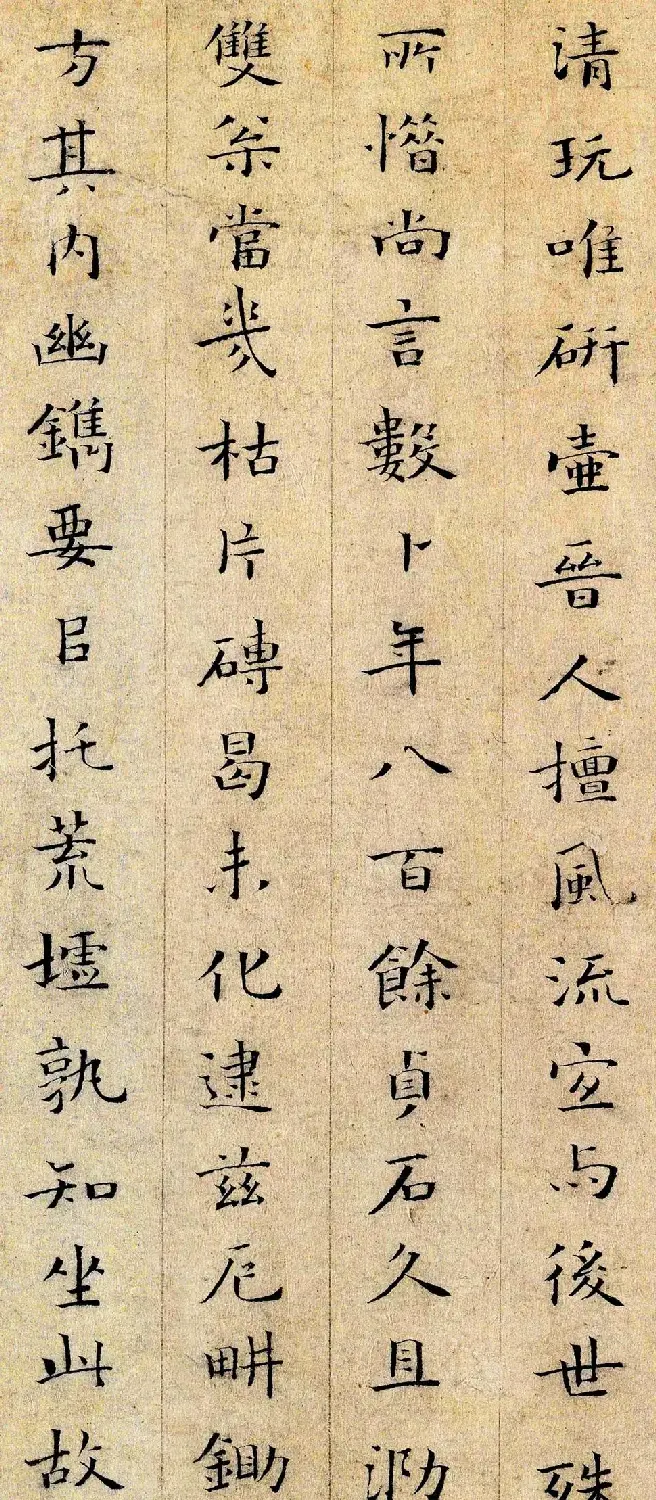 清玩唯研壺晉人擅風流宜与後世殊
所憯尚言數卜年八百餘貞石久且泐
雙枀當幾枯片磚曷未化逮茲厄畊鋤
方其内幽鐫要㠯托荒墟孰知坐此故